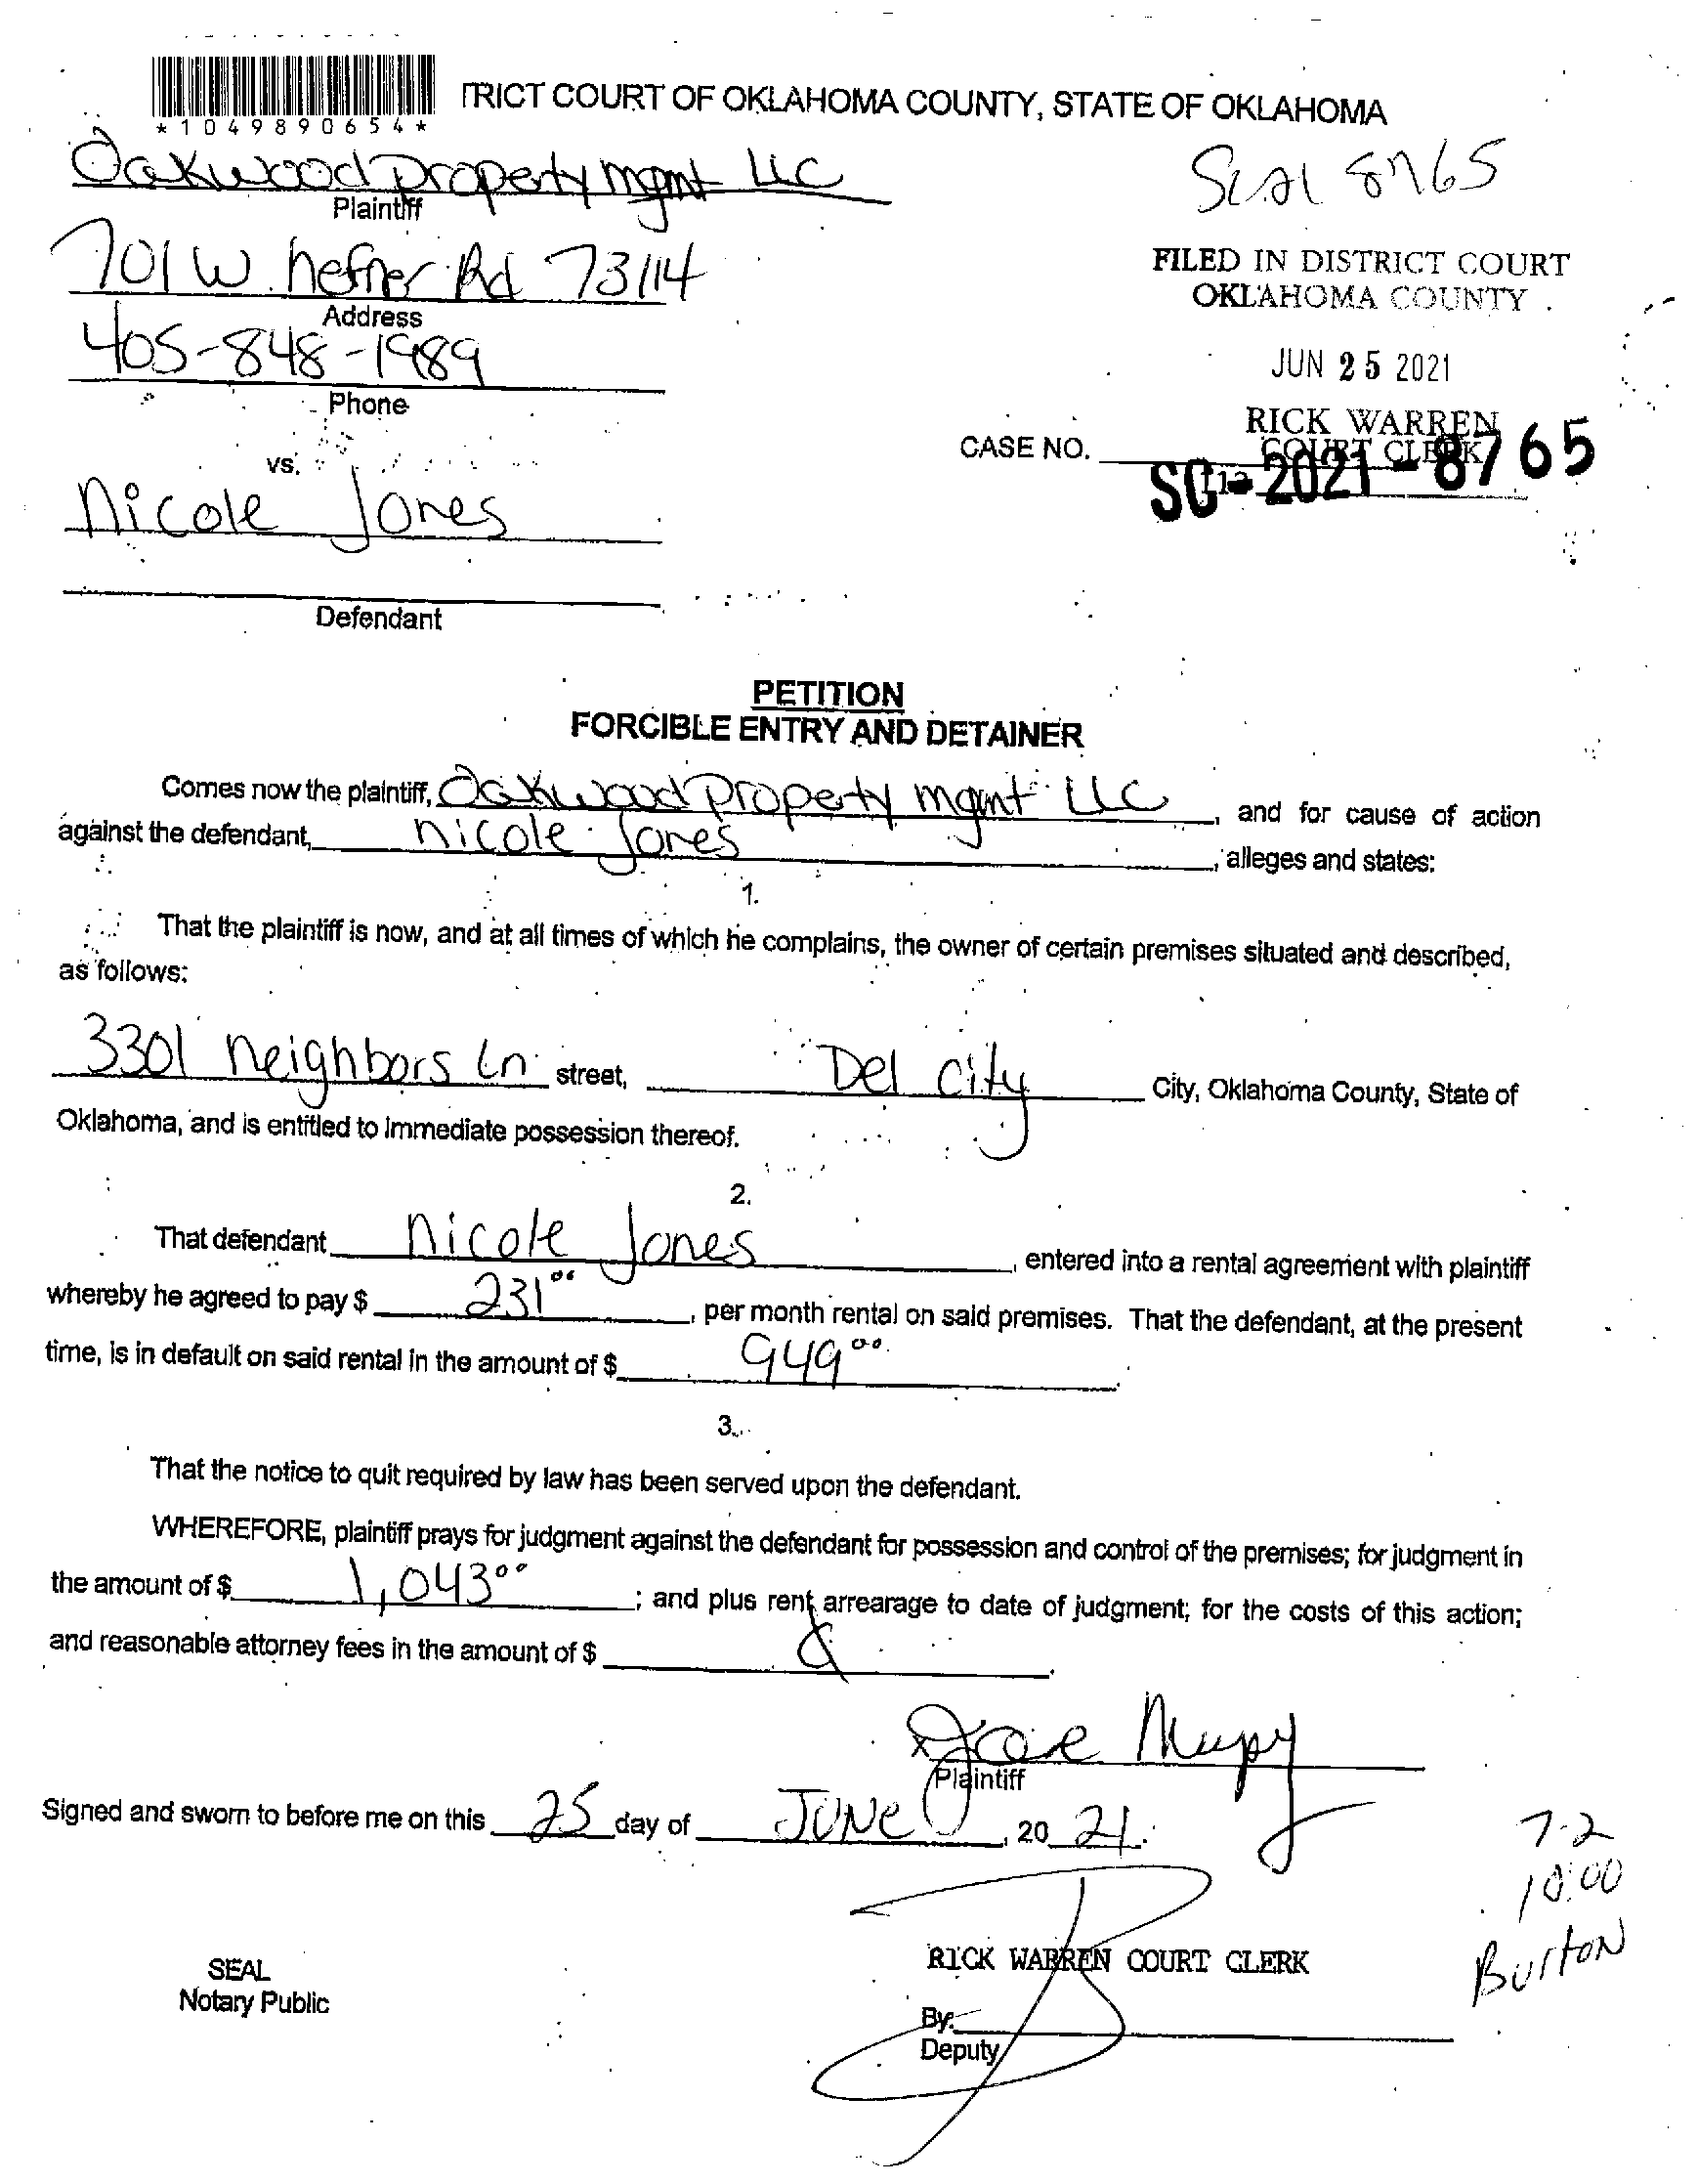 *1049890654*
TRICT COURT OF OKLAHOMA COUNTY, STATE OF OKLAHOMA
Oakwood Property mgmt LLC
Plaintiff
8765
701 W. hefner Rd 73114
Address
FILED IN DISTRICT COURT
OKLAHOMA COUNTY
405-848-1989
Phone
JUN 25 2021
RICK WARREN
COURT CLERK
CASE NO. SC-2021-8765
vs.
Nicole Jones
Defendant
PETITION
FORCIBLE ENTRY AND DETAINER
Comes now the plaintiff, Oakwood Property mgmt LLC, and for cause of action
against the defendant, nicole Jones, alleges and states:
1.
That the plaintiff is now, and at all times of which he complains, the owner of certain premises situated and described,
as follows:
3301 neighbors Ln street, Del City City, Oklahoma County, State of
Oklahoma, and is entitled to immediate possession thereof.
2.
That defendant Nicole Jones, entered into a rental agreement with plaintiff
whereby he agreed to pay $ 231.00, per month rental on said premises. That the defendant, at the present
time, is in default on said rental in the amount of $ 949.00.
3.
That the notice to quit required by law has been served upon the defendant.
WHEREFORE, plaintiff prays for judgment against the defendant for possession and control of the premises; for judgment in
the amount of $ 1,043.00; and plus rent arrearage to date of judgment; for the costs of this action;
and reasonable attorney fees in the amount of $
x
Plaintiff
Signed and sworn to before me on this 25 day of JUNE, 20 21.
7-2
10:00
Burton
RICK WARREN COURT CLERK
SEAL
Notary Public
By:
Deputy